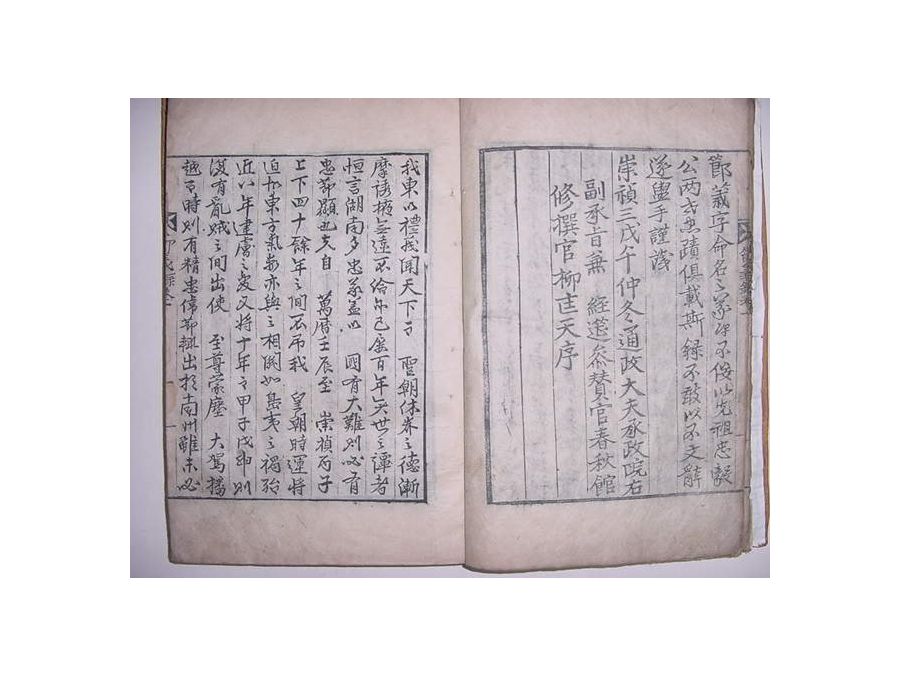 節義字命名之家得不佞以先祖忠毅
公兩世忠蹟俱載斯錄不敢以不文辭
遂盥手謹識
崇禎三戊午仲冬通政大夫承政院右
副承旨兼　經筵參贊官春秋館
修撰官柳匡天序
我東以禮義聞天下而　聖朝休養之德漸
百年矣世之譚者
恒言湖南多忠義盖以　國有大難則必有
忠節顯也夫自　萬曆壬辰至　崇禎丙子
上下四十餘年之間不弔我　皇朝時運將
迫而東方氣數亦與之相關如島夷之禍殆
近八年建虜之變又將十年而甲子戊則
復有亂賊之間出使　至尊蒙塵　大駕播
越而時則有精忠偉節輒出於南州雖未必